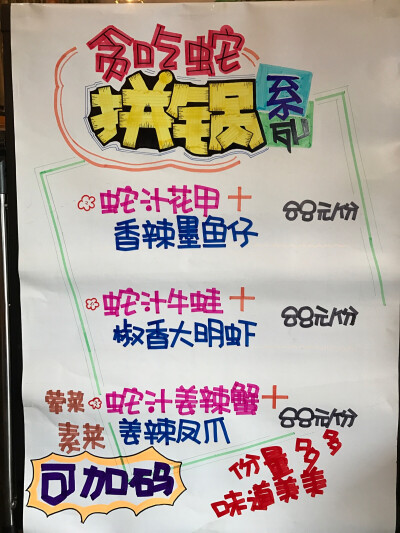 贪吃蛇
拼锅系列
蛇汁花甲+
香辣墨鱼仔
88元/份
蛇汁牛蛙+
椒香大明虾
88元/份
荤菜
素菜
蛇汁姜辣蟹+
姜辣凤爪
88元/份
可加码
份量多多
味道美美